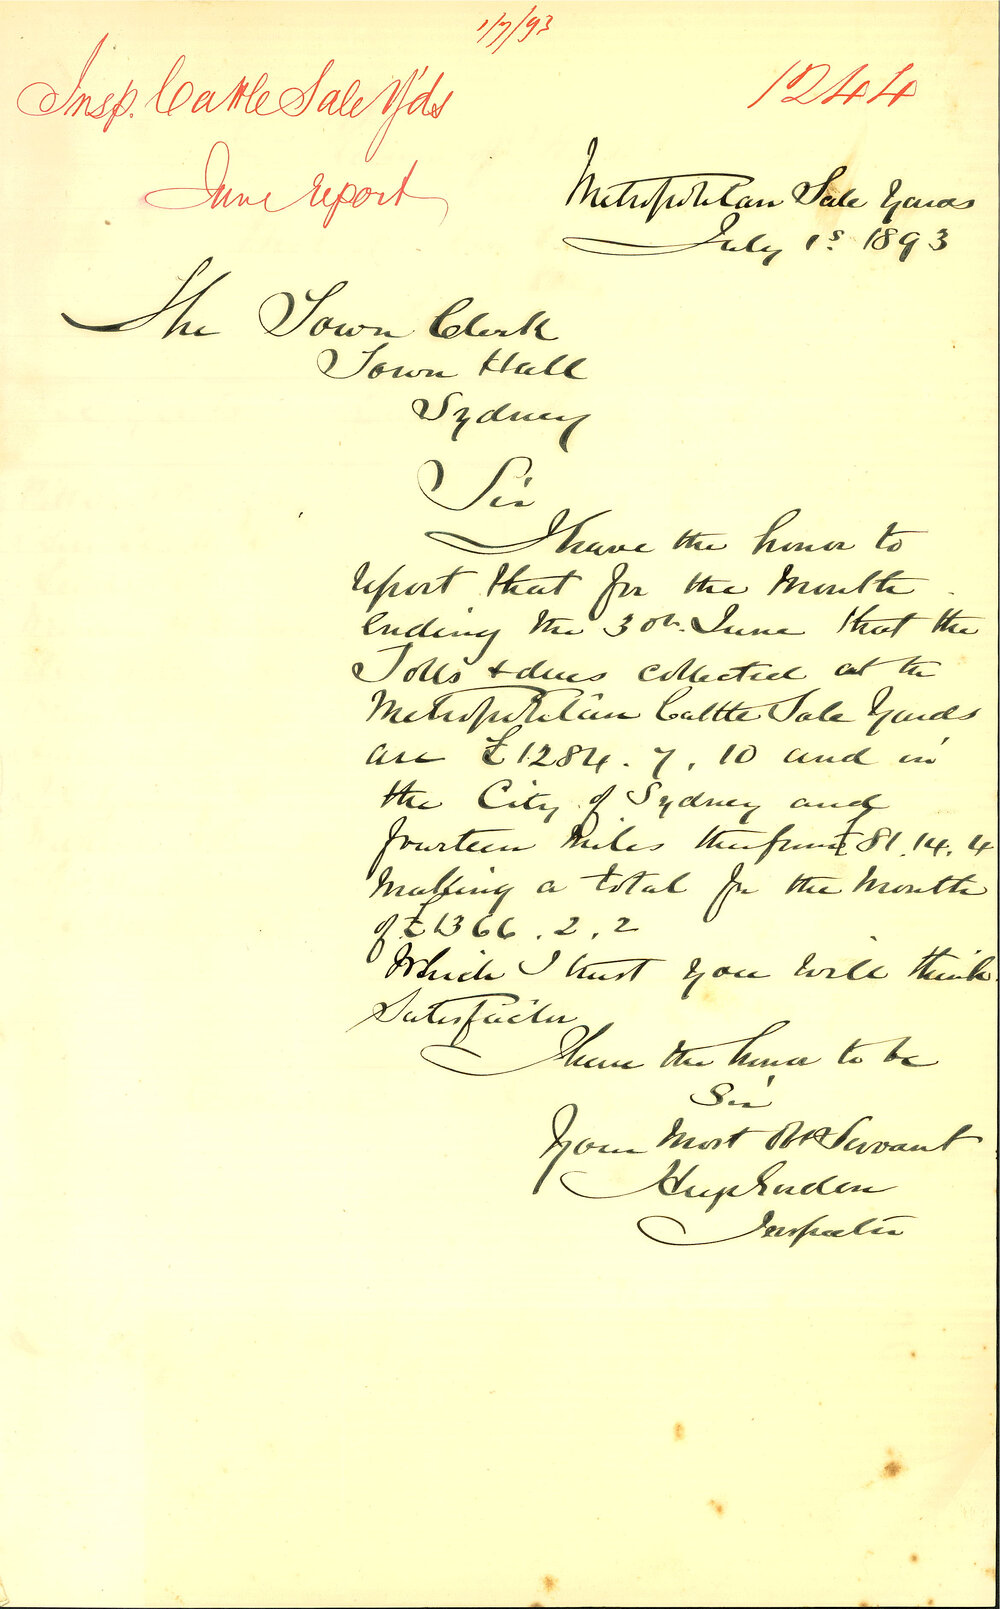 1/7/93
Insp. Cattle Sale Y'ds
1244
June report
Metropolitan Sale Yards
July 1s 1893
The Town Clerk
Town Hall
Sydney
Sir
I have the honor to
report that for the Month
Ending the 30th June that the
Tolls & dues collected at the
Metropolitan Cattle Sale Yards
are £1284. 7. 10 and in
the City of Sydney and
fourteen Miles therefrom £81. 14. 4
Making a total for the Month
of £1366. 2. 2
Which I trust you will think
Satisfactor
I have the honor to be
Sir
Your Most Obt Servant
Inspector